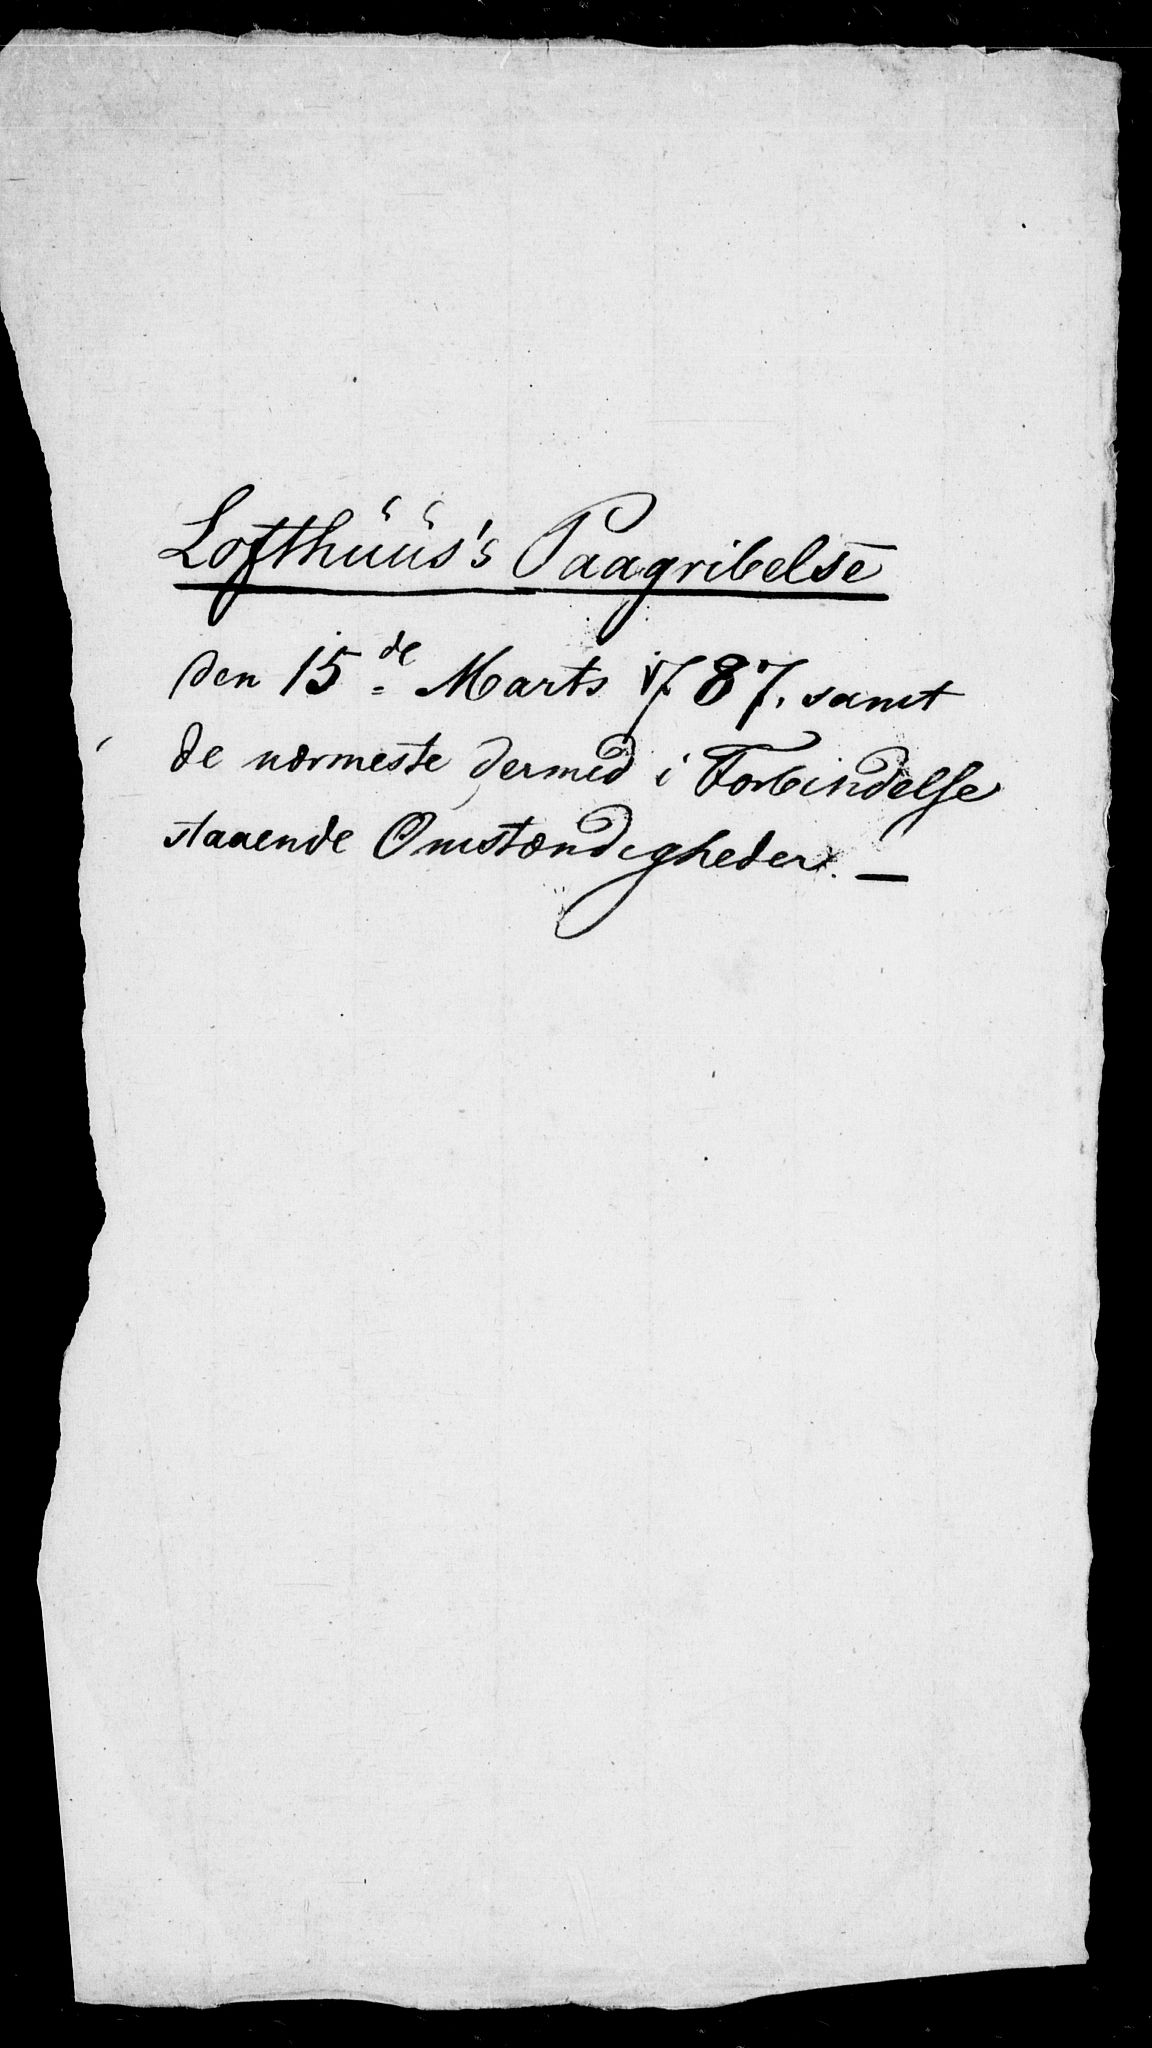 Lofthuus's Paagribelse
den 15de Marts 1787. samt
de nærmeste dermed i Forbindelse
staaende Omstændigheder. —